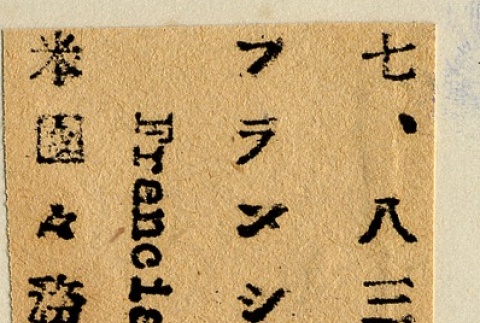 七、八三
フランシ
Francis
米國々務